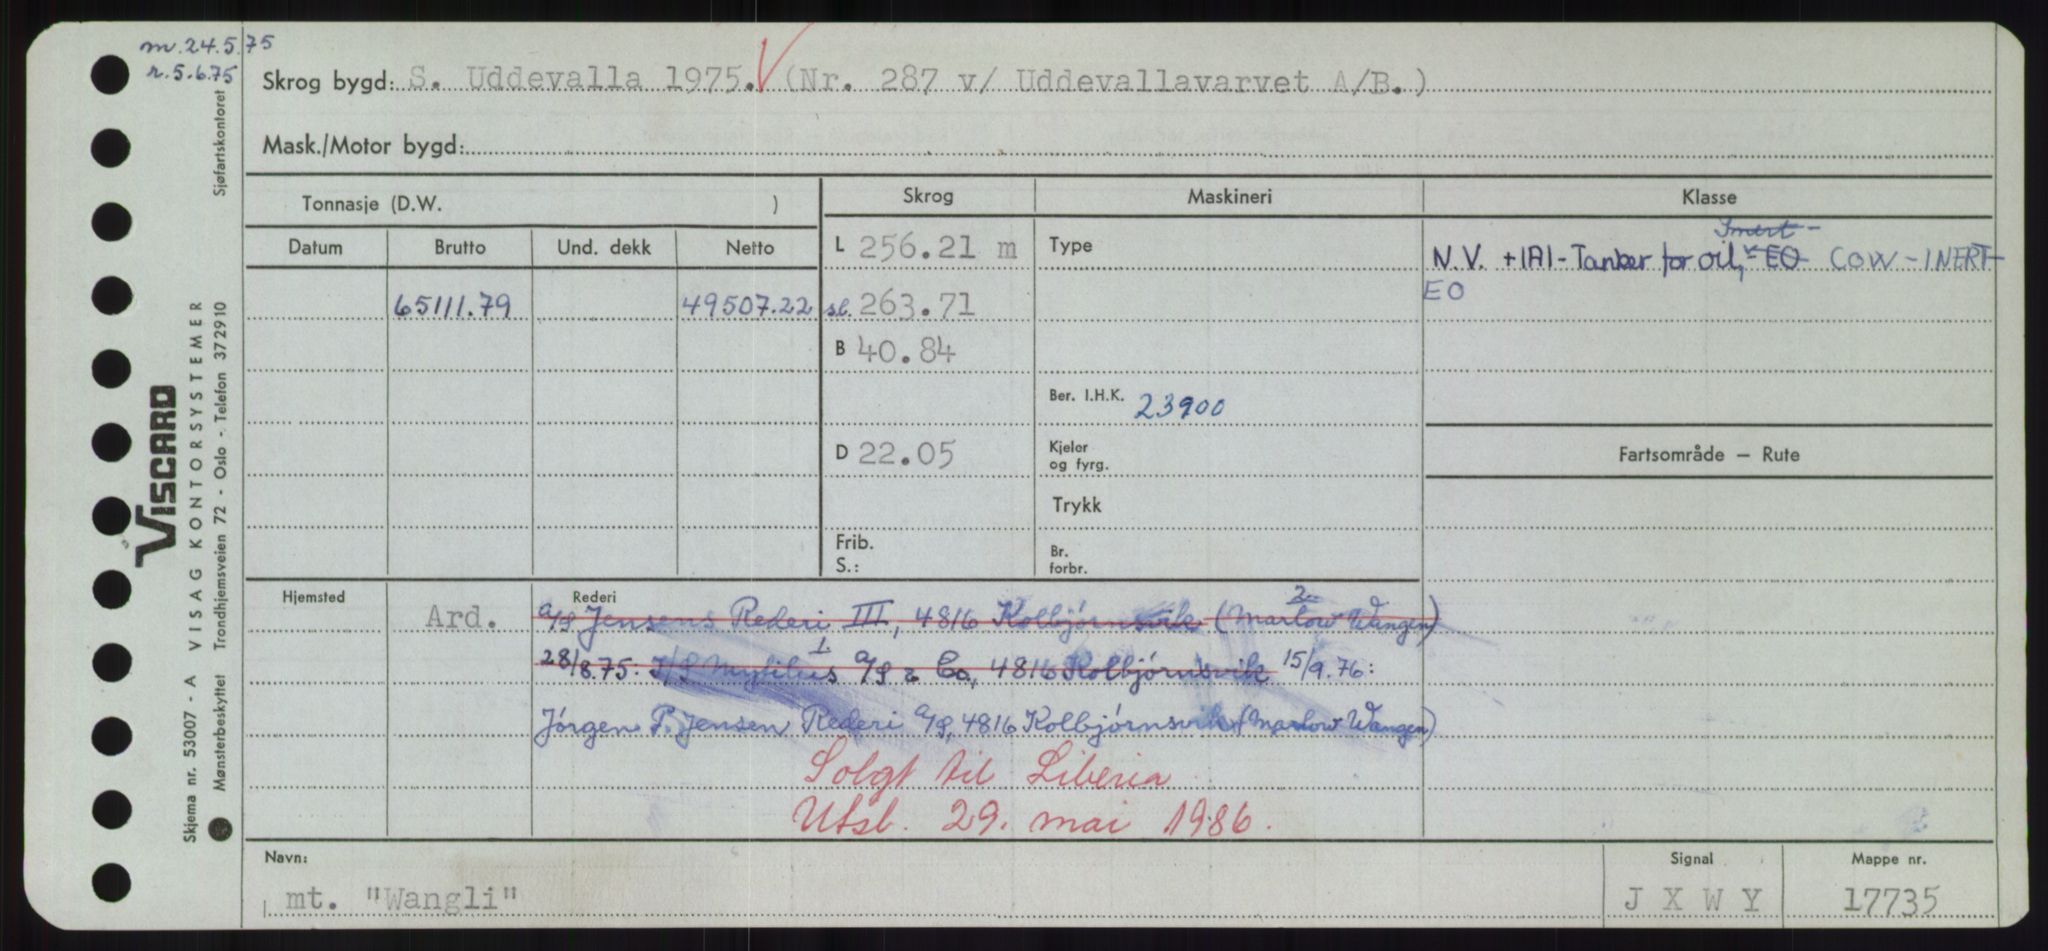 m. 24.5.75
r. 5.6.75
Skrog bygd: S. Uddevalla 1975. (Nr. 287 v/ Uddevallavarvet A/B.)
Mask./Motor bygd:
Tonnasje (D.W. )
Skrog
Maskineri
Klasse
Datum Brutto Und. dekk Netto
L 256.21 m
Type
Inert-
N.V. +1A1-Tanker for oil, EO COW-INERT
EO
65111.79 49507.22
sl. 263.71
B 40.84
Ber. I.H.K. 23900
D 22.05
Kjeler
og fyrg.
Fartsområde – Rute
Trykk
Frib.
S.:
Br.
forbr.
Hjemsted
Ard.
Rederi
2
A/S Jensens Rederi III, 4816 Kolbjørnsvik (Marlow Wangen)
1
28/8.75: I/S Mytilus A/S & Co, 4816 Kolbjørnsvik 15/9.76:
Jörgen P. Jensen Rederi A/S, 4816 Kolbjørnsvik (Marlow Wangen)
Solgt til Liberia
Utsl. 29. mai 1986.
Navn:
mt. "Wangli"
Signal
J X W Y
Mappe nr.
17735
VISCARD
Skjema nr. 53007 - A VISAG KONTORSYSTEMER
Mønsterbeskyttet Trondhjemsveien 72 - Oslo - Telefon 372910 Sjøfartskontoret